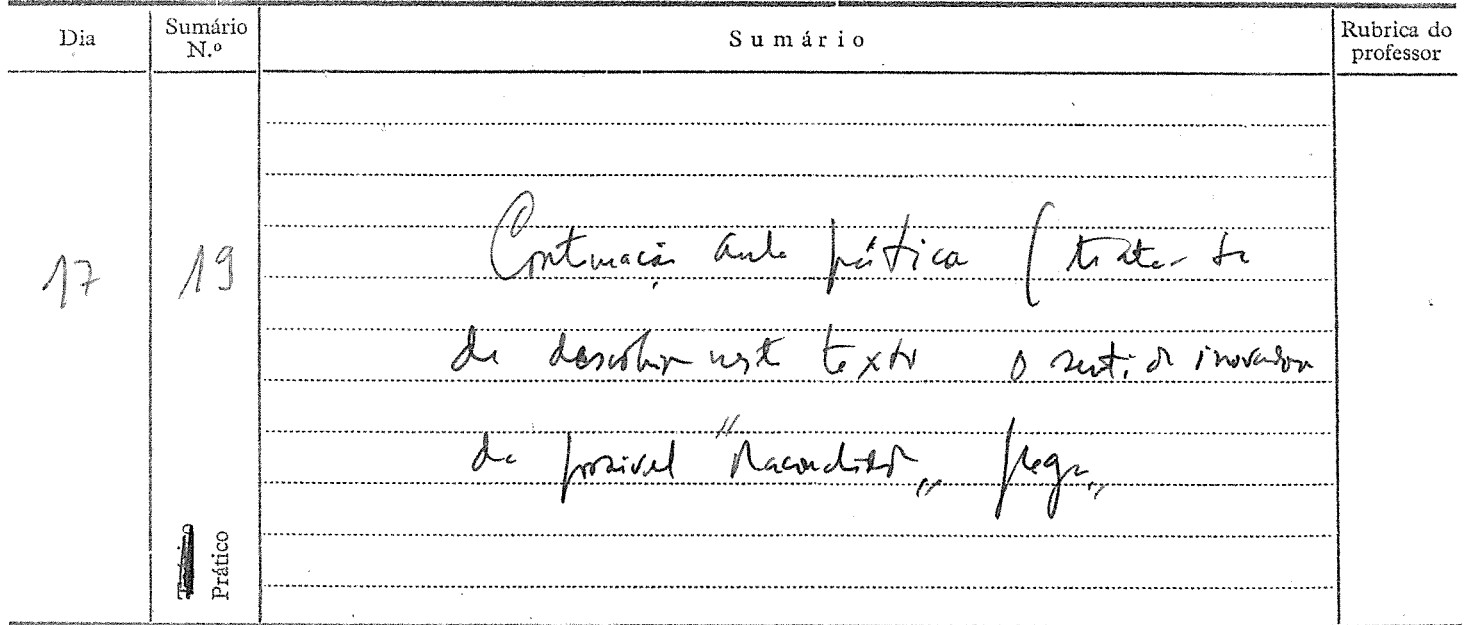 Dia Sumário N.º Sumário Rubrica do professor
17 19 Continuação aula prática (trata-se
de descobrir neste texto o sentido inovador
de possível
Prático